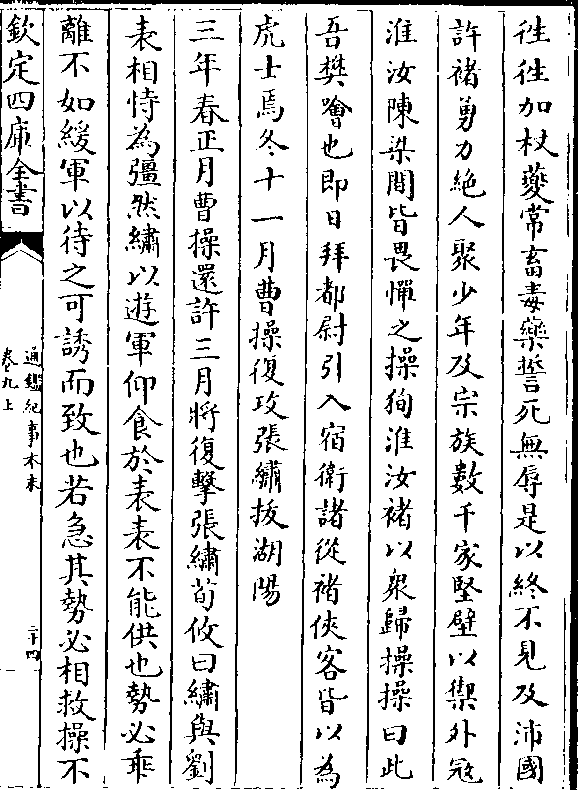 徃徃加杖夔常畜毒藥誓死無辱是以終不見及沛國
許褚勇力絶人聚少年及宗族數千家堅壁以禦外冦
淮汝陳梁間皆畏憚之操狥淮汝褚以衆歸操操曰此
吾樊噲也即日拜都尉引入宿衛諸從褚俠客皆以為
虎士焉冬十一月曹操復攻張繡拔湖陽
三年春正月曹操還許三月將復擊張繡荀攸曰繡與劉
表相恃為彊然繡以遊軍仰食於表表不能供也勢必乖
離不如緩軍以待之可誘而致也若急其勢必相救操不
欽定四庫全書
通鑑紀事本末
卷九上
二十四